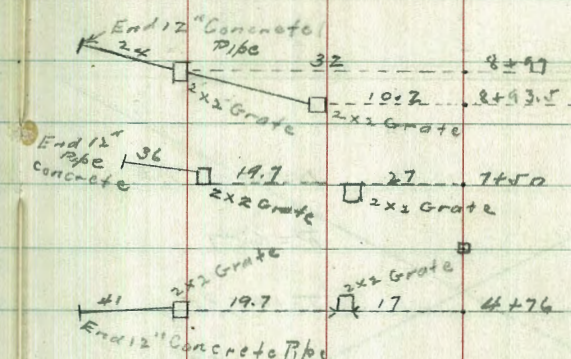 End 12" Concrete
Pipe
24
32
8+97
2x2 Grate
10.2
8+93.5
2x2 Grate
End 12"
Pipe
concrete
36
19.7
27
7+50
2x2 Grate
2x2 Grate
2x2 Grate
2x2 Grate
41
19.7
17
4+76
End 12" Concrete Pipe